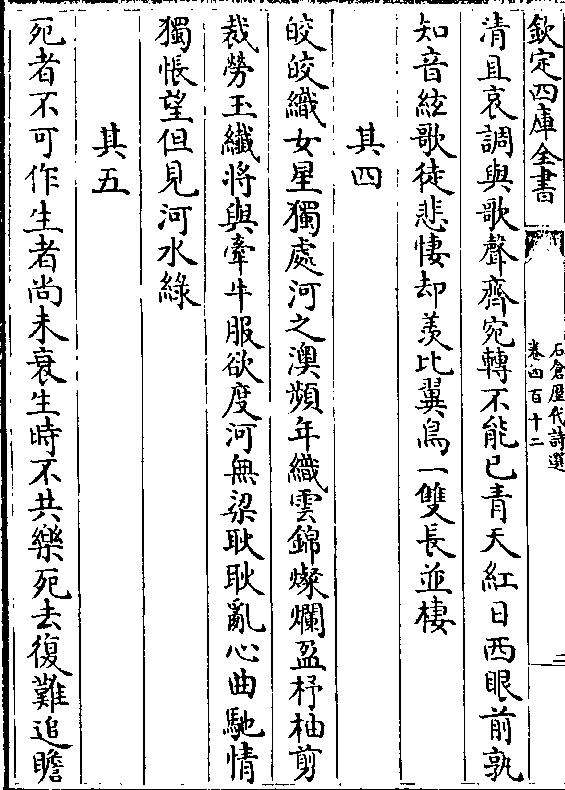 欽定四庫全書
石倉歷代詩選
卷四百十二
二
清且哀調與歌聲齊宛轉不能已青天紅日西眼前孰
知音絃歌徒悲悽却羨比翼鳥一雙長並棲
其四
皎皎織女星獨處河之澳頻年織雲錦燦爛盈杼柚剪
裁勞玉纖將與牽牛服欲度河無梁耿耿亂心曲馳情
獨悵望但見河水綠
其五
死者不可作生者尚未衰生時不共樂死去復難追瞻